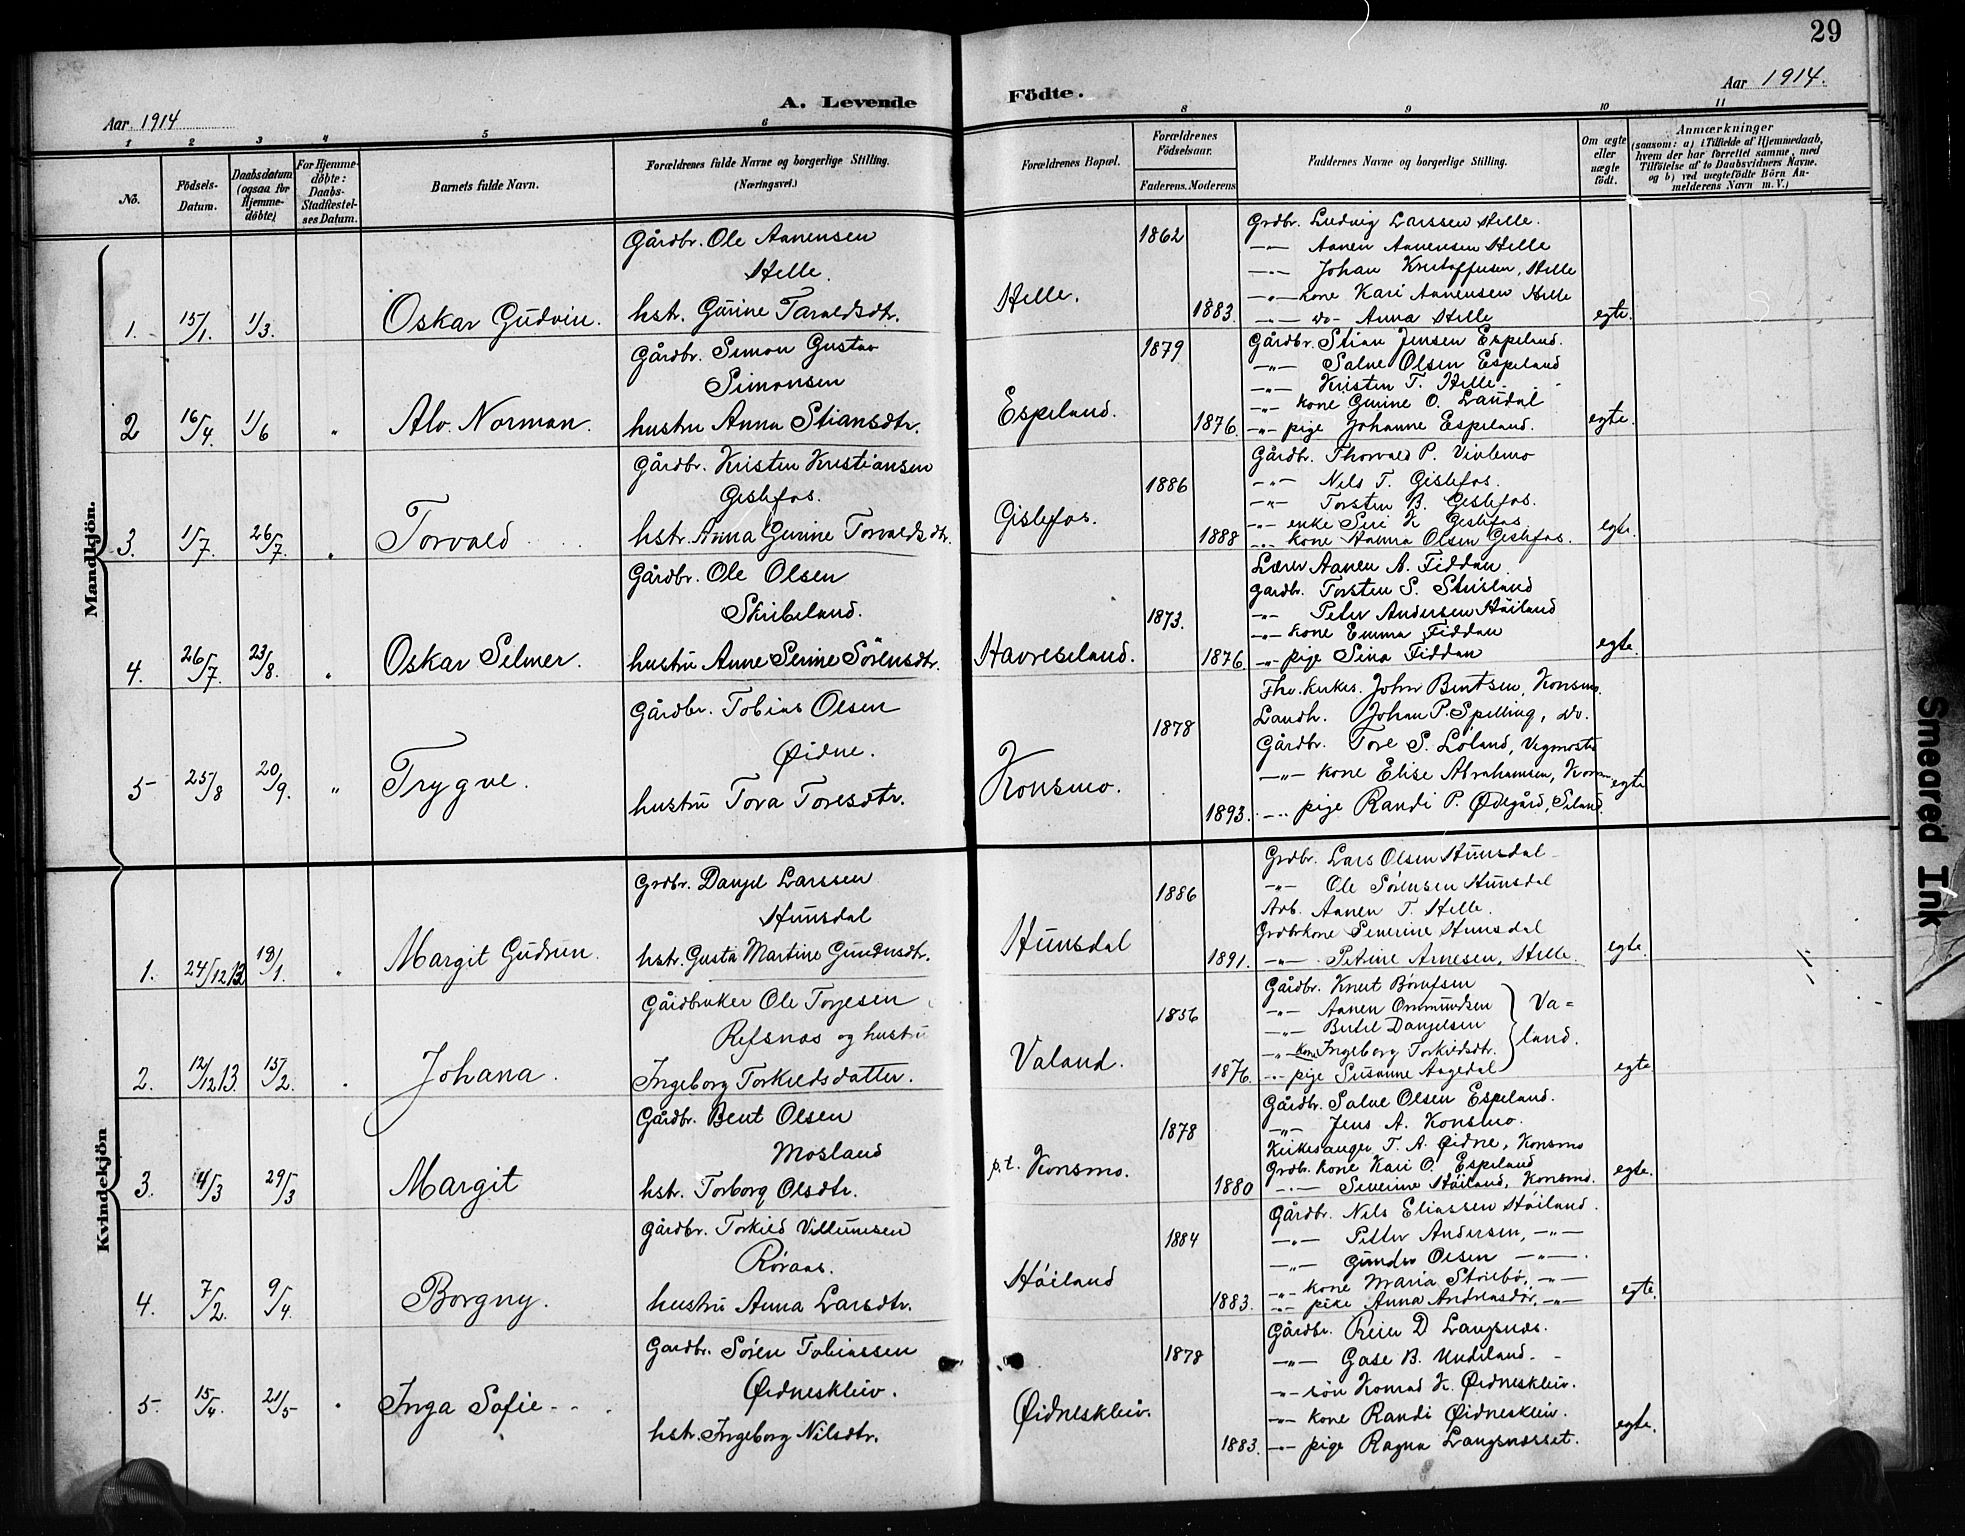 29
Aar 1914
A. Levende
Födte.
Aar 1914.
1 2 3 4 5 6 8 9 10 11
No.
Födsels-Datum.
Daabsdatum (ogsaa for Hjemme-döbte)
For Hjemme-döbte: Daabs-Stadfæstel-ses Datum.
Barnets fulde Navn.
Forældrenes fulde Navne og borgerlige Stilling. (Næringsvei.)
Forældrenes Bopæl.
Forældrenes Födselsaar.
Faderens. Moderens
Faddernes Navne og borgerlige Stilling.
Om ægte eller uægte födt.
Anmærkninger
(saasom: a) i Tilfælde af Hjemmedaab, hvem der har forrettet samme, med Tilföielse af to Daabsvidners Navne. og b) ved uægtefödte Börn An-melderens Navn m. V.)
Mandkjön.
1. 15/1. 1/3. Oskar Gudvin.
Gårdbr. Ole Aanensen
Helle.
hst. Gurine Taraldsdtr.
Helle. 1862 1883.
Grdbr. Ludvig Larssen Helle.
-"- Aanen Aanensen Helle
-"- Johan Kristoffersen, Helle
-"- kone Kari Aanensen Helle
-"- do- Anna Helle
egte.
2 16/4. 1/6 " Alv. Norman.
Gårdbr. Simon Gustav
Simonsen
hustru Anna Stiansdtr.
Espeland. 1879 1876.
Gårdbr. Stian Jensen Espeland.
-"- Salve Olsen Espeland
-"- Kristen T. Helle
-"- kone Gurine O. Laudal
-"- pige Johanne Espeland.
egte.
3. 1/7. 26/7. " Torvald
Gårdbr. Kristen Kristiansen
Gislefos.
hstr. Anna Gurine Torvaldsdtr.
Gislefos. 1886 1888
Gårdbr. Thorvald P. Vivlemo
-"- Nils T. Gislefos.
-"- Torsten B. Gislefos.
-"- enke Siri K Gislefos
-"- kone Hanna Olsen Gislefos.
egte.
4. 26/7. 23/8. " Oskar Selmer.
Gårdbr. Ole Olsen
Skibeland.
hustru Anne Serine Sörensdtr.
Havreseland. 1873. 1876.
Lærer Aanen A. Fiddan
Gardbr. Torsten S. Stuisland
-"- Peter Andersen Höiland
-"- kone Emma Fiddan
-"- pige Sina Fiddan
egte.
5 25/8 20/9. " Trygve.
Gårdbr. Tobias Olsen
Øidne.
hustru Tora Toresdtr.
Konsmo. 1878 1893.
Fhv. kirkes. John Bentsen, Konsmo.
Landh. Johan P. Spilling, do.
Gårdbr. Tore S. Loland, Vegmostø
-"- kone Elise Abrahamsen, Konsm
-"- pige Randi P. Ødegård, Seland.
egte
Kvindekjön
1. 24/12 13 18/1. " Margit Gudrun.
Grdbr. Danjel Larssen
Hunsdal
hstr. Gusta Martine Gundersdtr.
Hunsdal 1886 1891.
Grdbr. Lars Olsen Hunsdal
-"- Ole Sørensen Hunsdal
Arb. Aanen T. Helle.
Grdbrkone Severine Hunsdal
-"- Petrine Arnesen, Helle.
egte.
2. 12/12 13. 15/2. " Johana.
Gårdbruker Ole Torjesen
Refsnæs og hustru
Ingeborg Torkieldsdatter.
Valand. 1856 1876.
Gårdbr. Knut Børufsen
-"- Aanen Ommundsen
-"- Bertel Danjelsen
-"- kone Ingeborg Torkildsdtr.
-"- pige Susanne Aagedal
Va=
land.
egte
3. 4/3 29/3 Margit
Gårdbr. Bent Olsen
Mosland
hstr. Torborg Olsdtr.
p.t. Konsmo. 1878 1880
Gårdbr. Salve Olsen Espeland.
-"- Jens A. Konsmo.
Kirkesanger T. A. Øidne, Konsmo
Grdbr. kone Kari O. Espeland
-"- Severine Höiland, Konsmo.
egte.
4. 7/2. 9/4. Borgny.
Gårdbr. Torkild Villumsen
Röraas.
hustru Anna Larsdtr.
Höiland 1884 1883.
Gårdbr. Nils Eliassen Höiland.
-"- Petter Andersen, -"-
-"- Gunder Olsen -"-
-"- kone Maria Storebø, -"-
-"- pike Anna Andreasdtr, -"-
egte.
5. 15/4. 21/5 " Inga Sofie
Gardbr. Sören Tobiassen
Øidneskleiv.
hstr. Ingeborg Nilsdtr.
Øidneskleiv. 1878 1883.
Gårdbr. Reier D Langsnæs.
-"- Gase B. Undeland.
-"- sön Konrad K. Øidneskleiv.
-"- kone Randi Øidneskleiv.
-"- pige Ragna Langsnæsset.
egte.
Smeared Ink